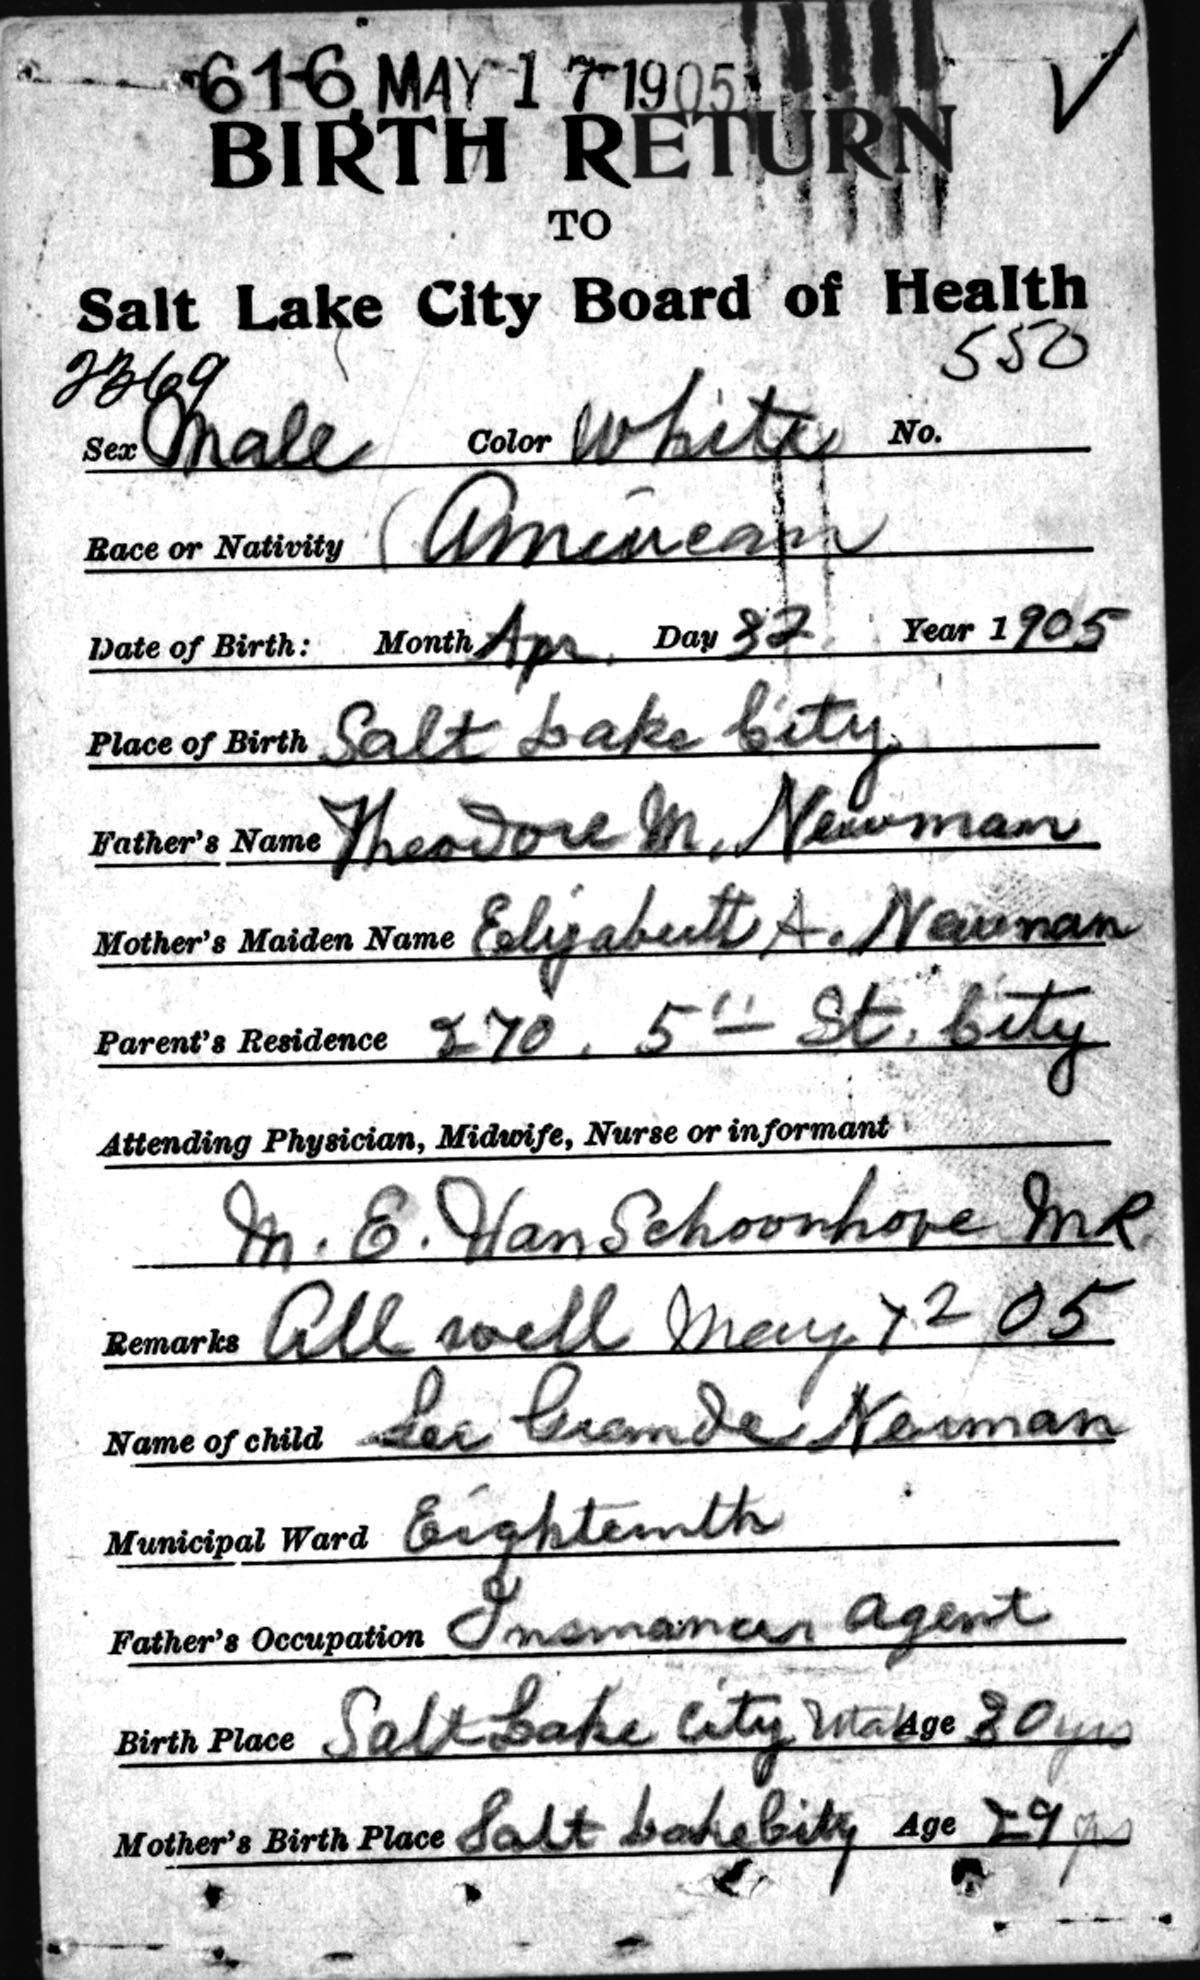 616 MAY 17 1905
BIRTH RETURN
TO
Salt Lake City Board of Health
2369 550
Sex Male Color White No.
Race or Nativity American
Date of Birth: Month Apr. Day Year 1905
Place of Birth Salt Lake City
Father's Name Theodore M. Newman
Mother's Maiden Name Elizabeth A. Newman
Parent's Residence 270. 5th St. City
Attending Physician, Midwife, Nurse or informant
M. E. Van Schoonhove
Remarks All well May 05
Name of child Lee Grande Newman
Municipal Ward Eighteenth
Father's Occupation Insurance Agent
Birth Place Salt Lake City Utah Age 30 yrs
Mother's Birth Place Salt Lake City Age 29 yrs